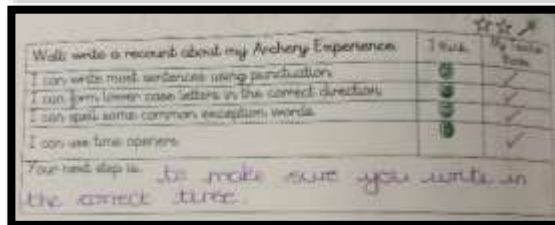 Walt: write a recount about my Archery Experience. I think My Teacher thinks
I can write most sentences using punctuation.
I can form lower case letters in the correct direction.
I can spell some common exception words.
I can use time openers.
Your next step is: to make sure you write in
the correct tense.